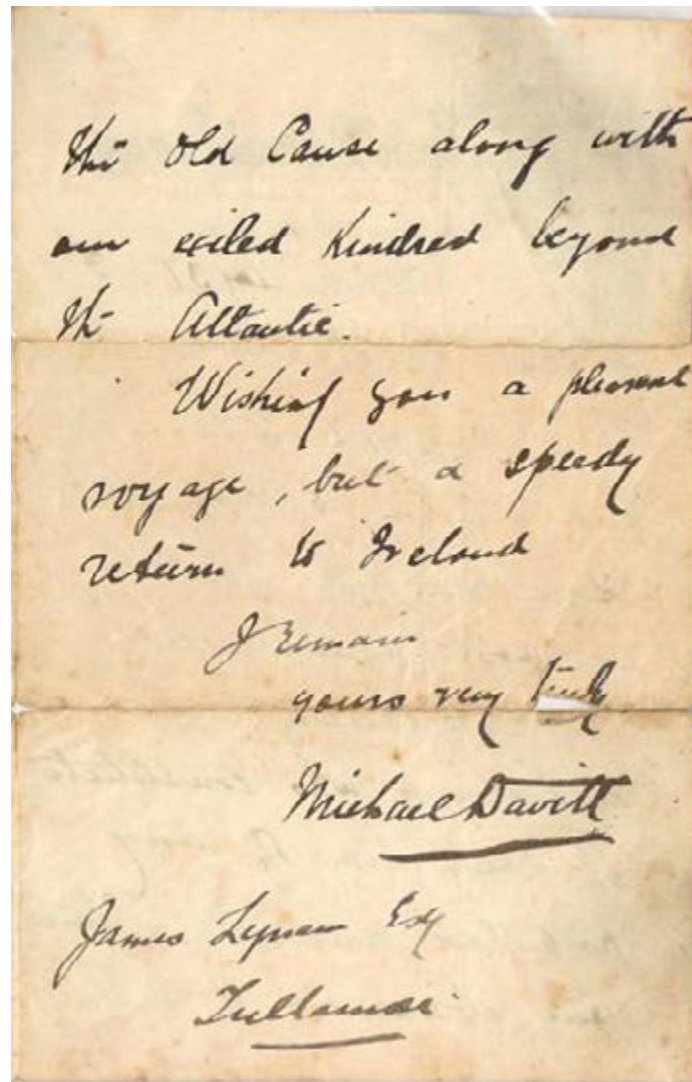 the old Cause along with
our exiled Kindred beyond
the Atlantic.
Wishing you a pleasant
voyage, but a speedy
return to Ireland
I remain
yours very truly
Michael Davitt
James Esq
Tullamore.